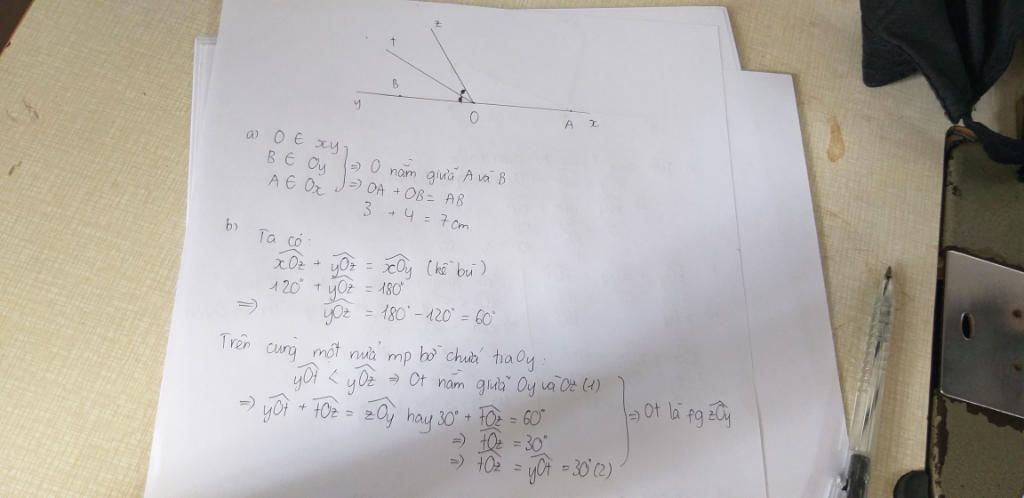 z
t
B
y
O
A
x
a) O ∈ xy
B ∈ Oy
A ∈ Ox
=> O nằm giữa A và B
=> OA + OB = AB
3 + 4 = 7cm
b) Ta có:
xOz + yOz = xOy (kề bù)
120° + yOz = 180°
=> yOz = 180° - 120° = 60°
Trên cùng một nửa mp bờ chứa tia Oy:
yOt < yOz => Ot nằm giữa Oy và Oz (1)
=> yOt + tOz = zOy hay 30° + tOz = 60°
=> tOz = 30°
=> tOz = yOt = 30° (2)
=> Ot là fg zOy